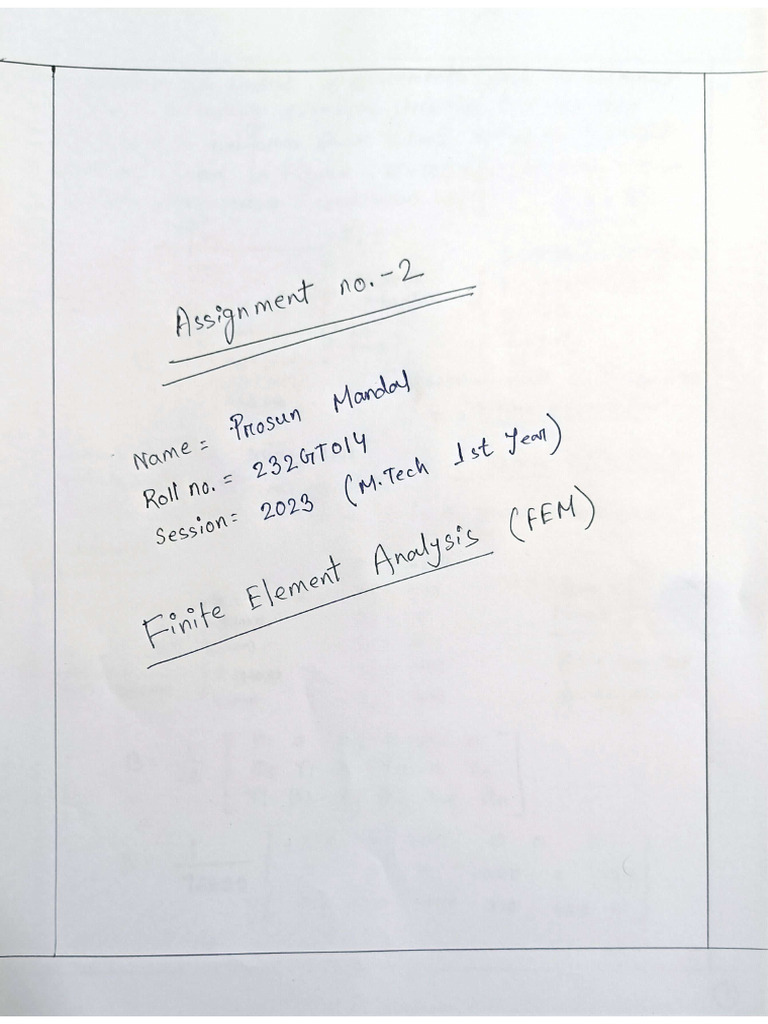 Assignment no.-2
Name = Prosun Mandal
Roll no. = 232GT014
Session = 2023 (M.Tech 1st Year)
Finite Element Analysis (FEM)